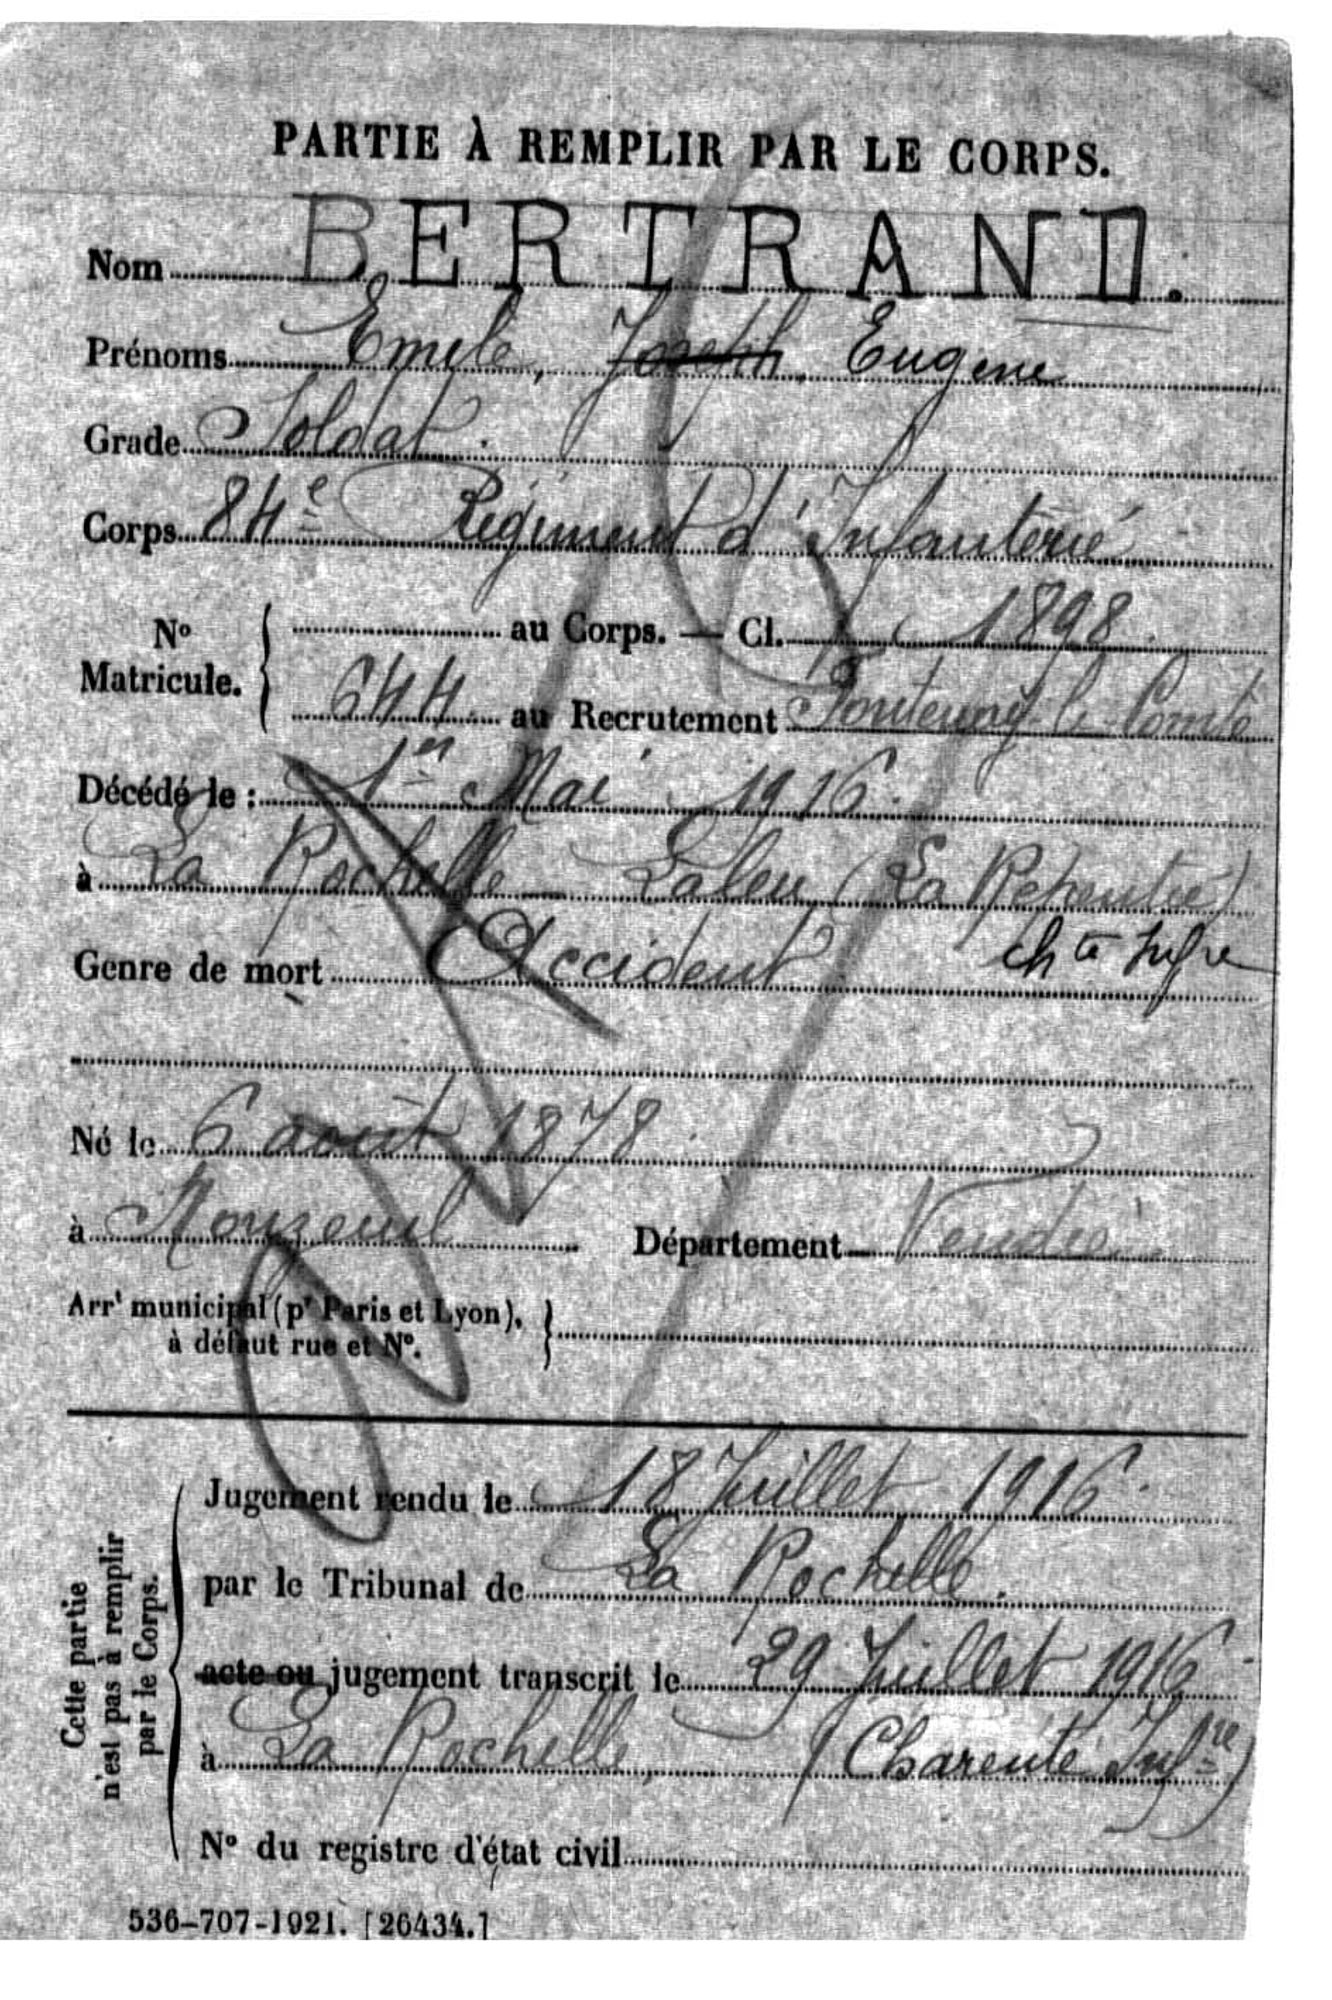 PARTIE À REMPLIR PAR LE CORPS.
Nom BERTRAND.
Prénoms Emile, Joseph, Eugene
Grade Soldat.
Corps 84e Régiment d'Infanterie
No Matricule. { au Corps. — Cl. 1898.
644 au Recrutement Fontenay-le-Comte
Décédé le : 1er Mai 1916.
à La Rochelle Laleu (La Repentie)
Chte Infre
Genre de mort Accident
Né le 6 août 1878.
à Mouzeuil Département Vendée
Arrt municipal (pr Paris et Lyon), }
à défaut rue et No.
Cette partie
n'est pas à remplir
par le Corps.
Jugement rendu le 18 Juillet 1916.
par le Tribunal de La Rochelle.
acte ou jugement transcrit le 29 Juillet 1916
à La Rochelle, (Charente Infre)
No du registre d'état civil
536-707-1921. [26434.]